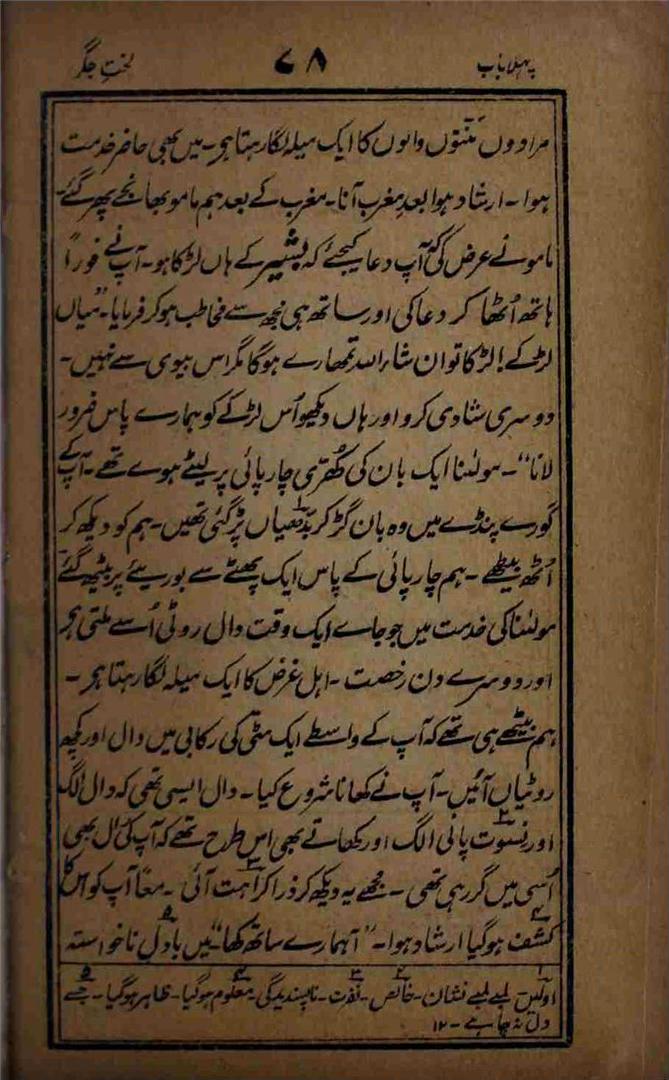 پہلا باب ۷۸ لختِ جگر
مرادوں منّتوں والوں کا ایک میلہ لگا رہتا ہی۔ میں بھی حاضر خدمت
ہوا۔ ارشاد ہوا بعدِ مغرب آنا۔ مغرب کے بعد ہم ماموبھانجے پھر گئے۔
مامو نے عرض کی کہ آپ دعا کیجئے کہ بشیر کے ہاں لڑکا ہو۔ آپ نے فوراً
ہاتھ اُٹھا کر دعا کی اور ساتھ ہی مجھ سے مخاطب ہو کر فرمایا۔ "میاں
لڑکے! لڑکا تو ان شاء اللہ تمھارے ہوگا مگر اس بیوی سے نہیں۔
دوسری شادی کرو اور ہاں دیکھو اُس لڑکے کو ہمارے پاس ضرور
لانا"۔ مولٰنا ایک بان کی کُھرّی چارپائی پر لیٹے ہوے تھے۔ آپ کے
گورے پنڈے میں وہ بان گڑ کر بدّھیاں پڑ گئی تھیں۔ ہم کو دیکھ کر
اُٹھ بیٹھے۔ ہم چارپائی کے پاس ایک پھٹے سے بوریئے پر بیٹھ گئے
مولٰنا کی خدمت میں جو جاے ایک وقت دال روٹی اُسے ملتی ہی
اور دوسرے دن رخصت۔ اہل غرض کا ایک میلہ لگا رہتا ہی۔
ہم بیٹھے ہی تھے کہ آپ کے واسطے ایک مٹی کی رکابی میں دال اور کچھ
روٹیاں آئیں۔ آپ نے کھانا شروع کیا۔ دال ایسی تھی کہ دال الگ
اور نسوت پانی الگ اور کھاتے بھی اس طرح تھے کہ آپ کی رال بھی
اُسی میں گر رہی تھی۔ مجھے یہ دیکھ کر ذرا کراہت آئی۔ معاً آپ کو اس کا
کشف ہوگیا ارشاد ہوا۔ "آ ہمارے ساتھ کھا" میں بادل ناخواستہ
۱ اوکیں لمبے لمبے نشان۔ ۲ خالص۔ ۳ نفرت۔ ناپسندیدگی ۴ معلوم ہوگیا۔ ظاہر ہوگیا۔ ۵ جسے
دل نہ چاہے۔ ۱۲